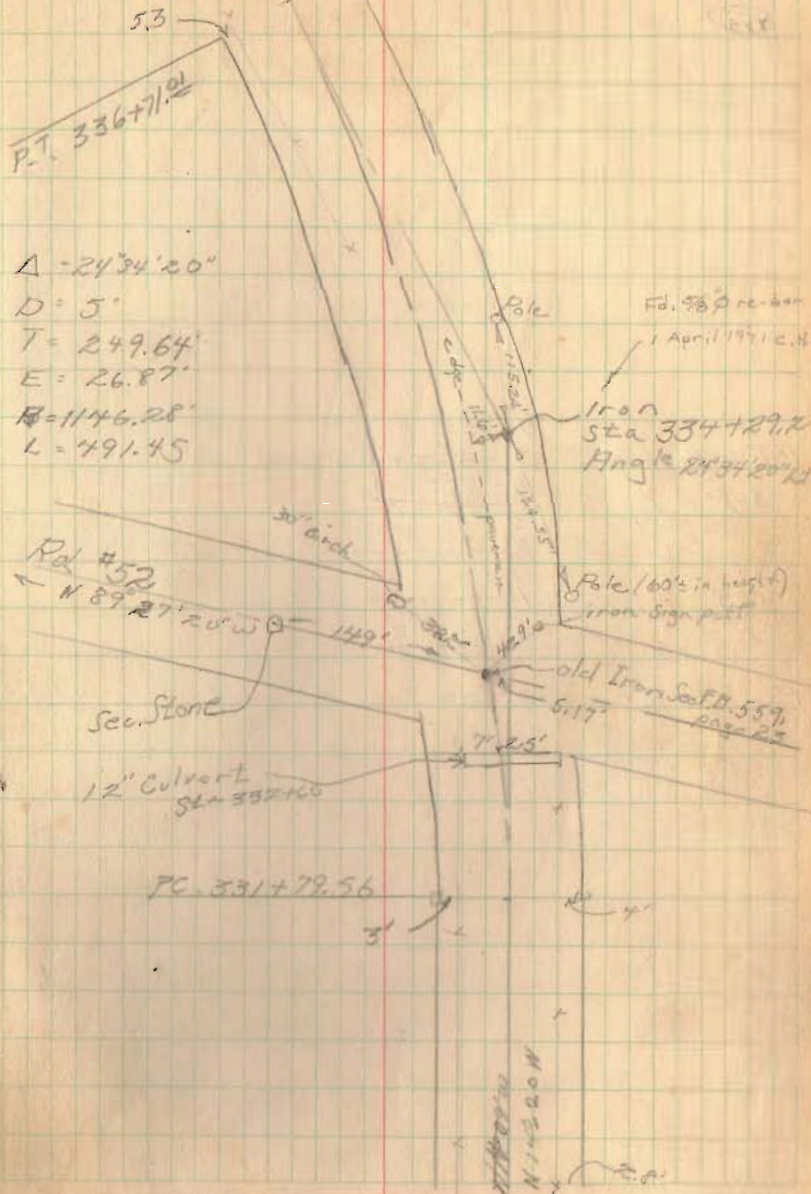 53
P.T. 336+71.01
Δ - 24°34'20"
D = 5°
T = 249.64'
E = 26.87'
R = 1146.28'
L = 491.45
Pole
Fd. 5/8" Ø re-bar
1 April 1971 C.H
115.24'
edge
pavement
11.6'
Iron
Sta 334+29.2
Angle 24°34'20" Lt
30" birch
Pole (60'± in height)
iron sign post
Rd #52
N 89° 27' 20" W
149'
42.9'
old Iron See F.B. 559,
page 23
5.17'
Sec. Stone
7' 25'
12" Culvert
Sta 332+60
PC. 331+79.56
3'
4'
2.8'